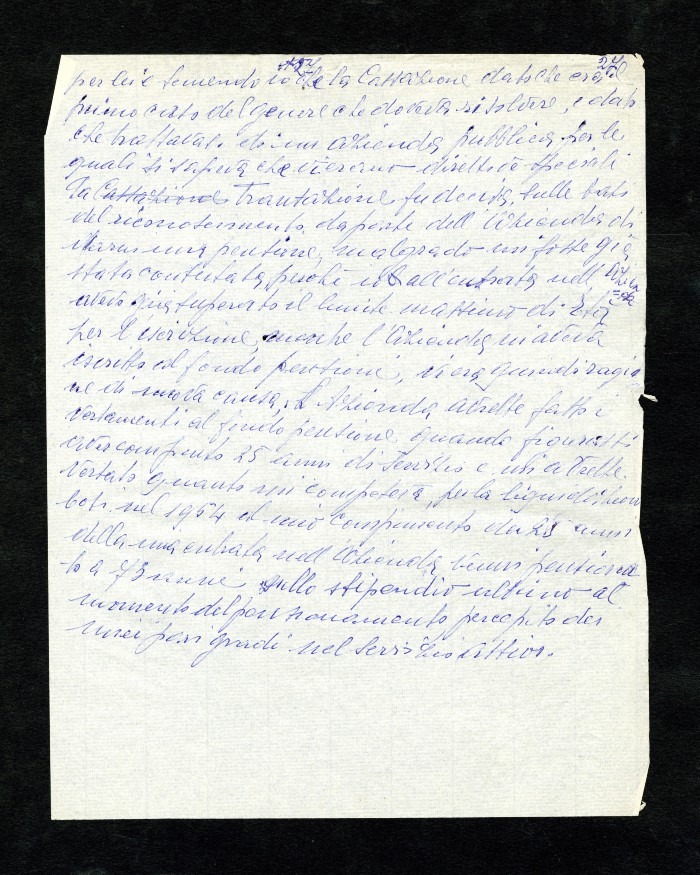 24
per lei e temendo io che la Cassazione dato che era il
primo caso del genere che doveva risolvere, e dato
che trattavasi di un azienda pubblica per le
quali si sapeva che vi erano direttive speciali
La Cassazione Transazione fu decisa, sulle basi
del riconoscimento, da parte dell'Azienda di
darmi una pensione, malgrado mi fosse già
stata contestata, perché io all'entrata nell'Azienda
avevo già superato il limite massimo di età
per l'iscrizione, anche l'Azienda mi aveva
iscritto al fondo pensione, vi era quindi ragio
ne di nuova causa, l'Azienda avrebbe fatto i
versamenti al fondo pensione quando figurassi
aver compiuto 25 anni di servizio e mi avrebbe
versato quanto mi competeva, per la liquidazione
così nel 1954 al mio compimento dei 25 anni
della mia entrata nell'Azienda venni pensiona
to a 73 anni sullo stipendio ultimo al
momento del pensionamento percepito dai
miei pari gradi nel servizio attivo.